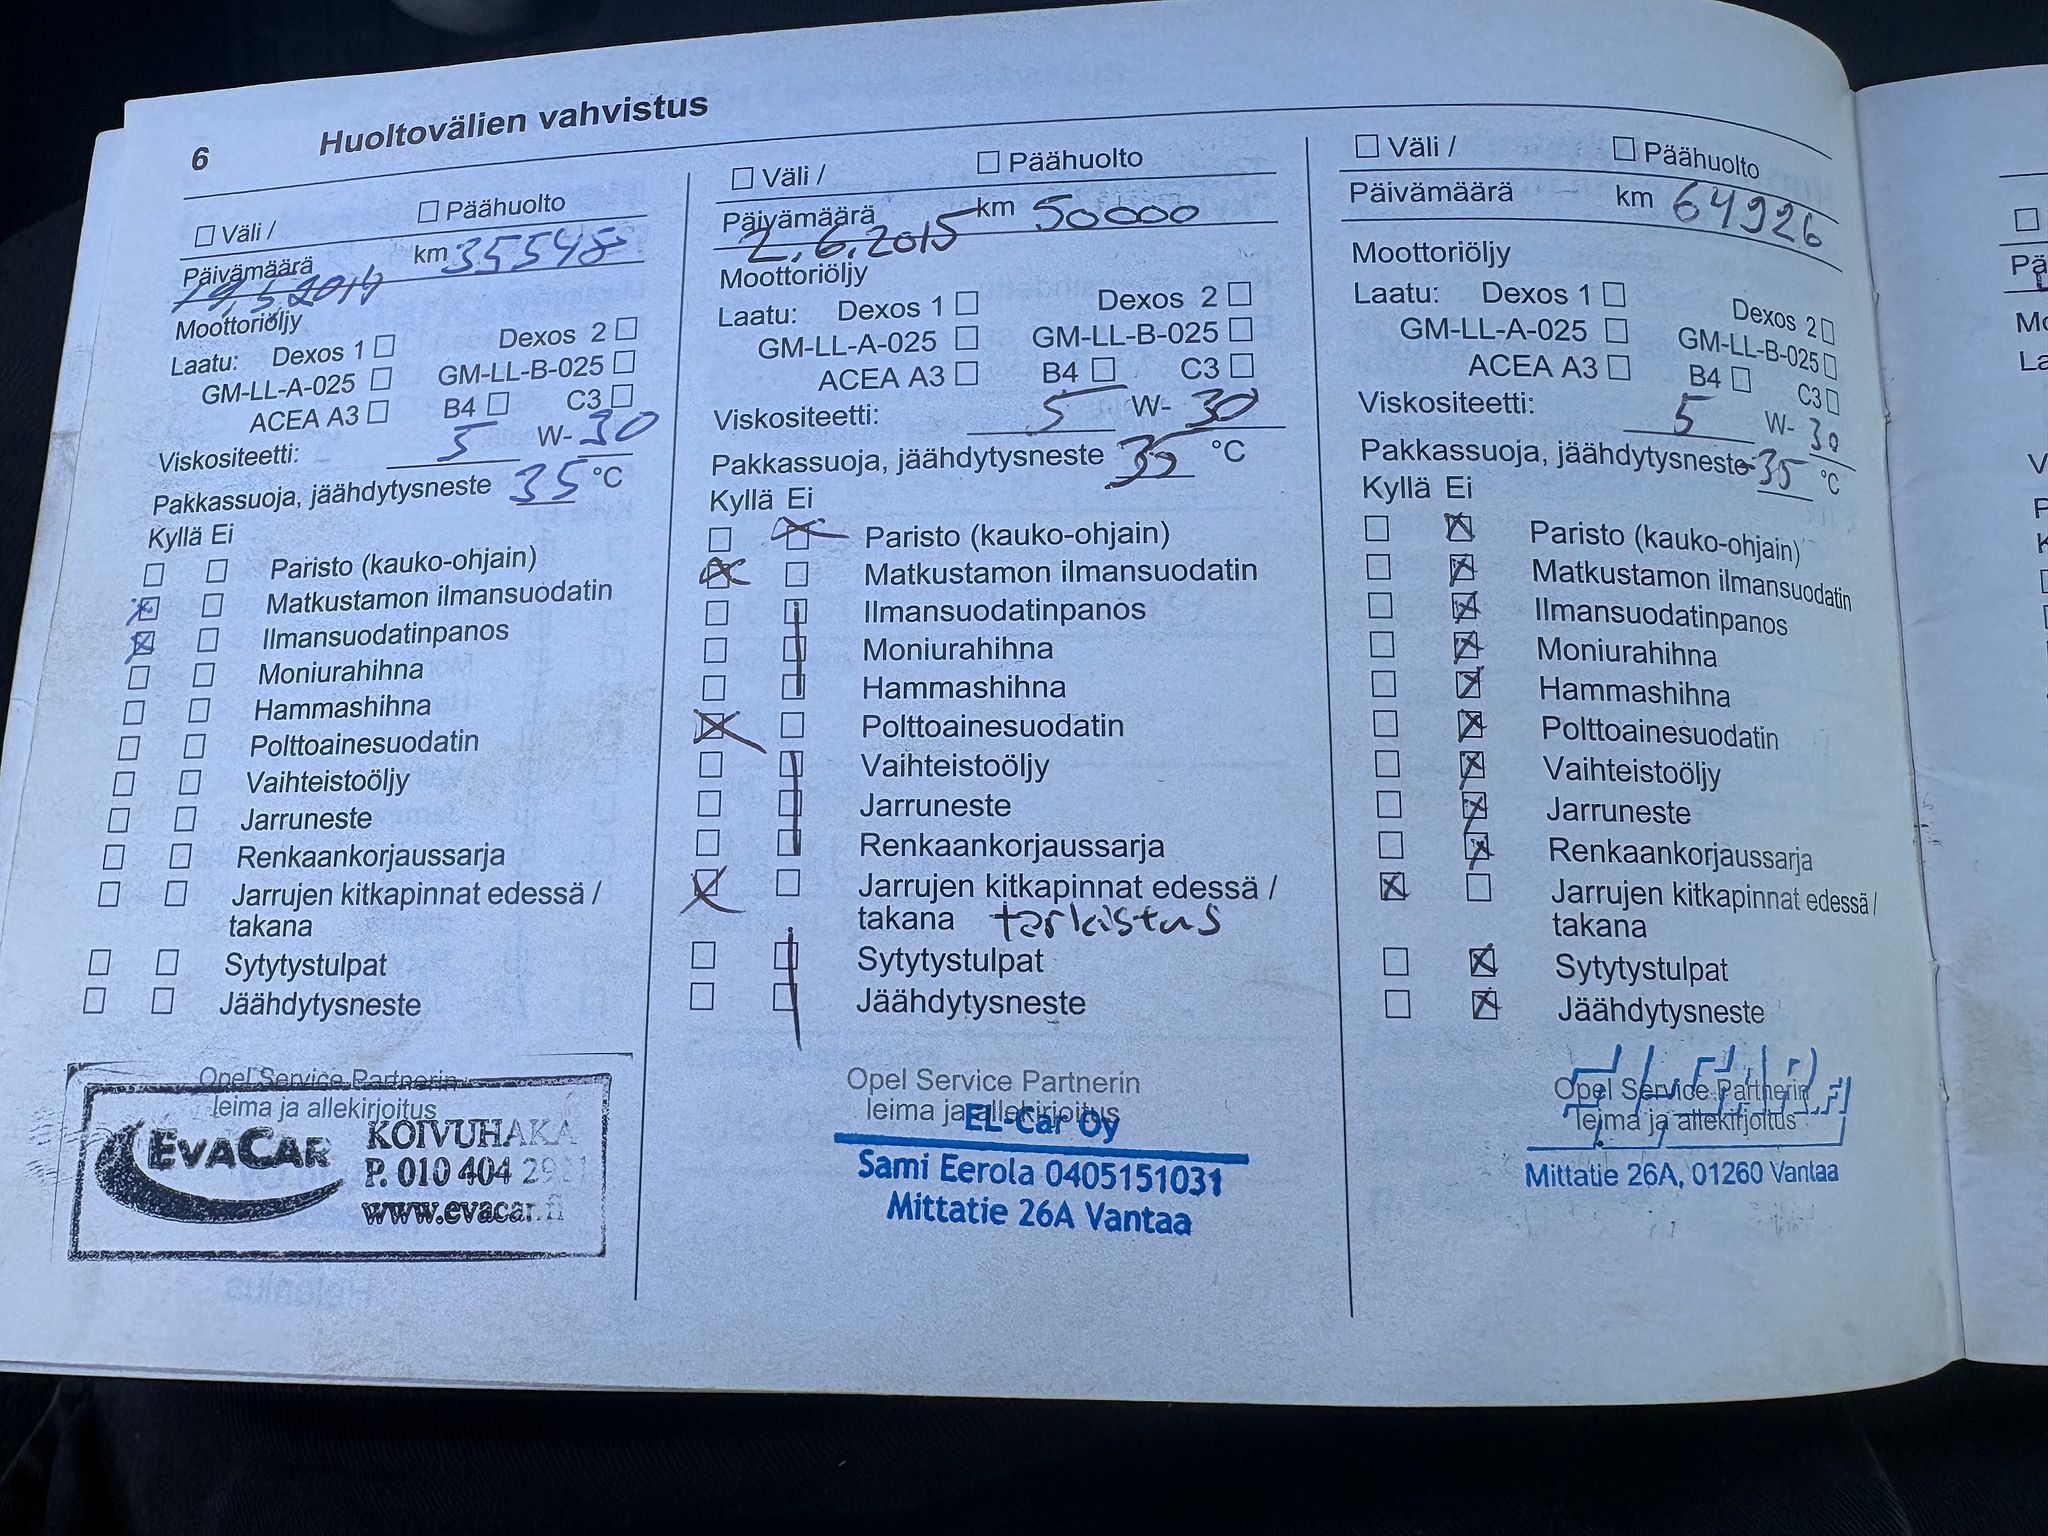 6 Huoltovälien vahvistus
Väli / Päähuolto
Päivämäärä km 35548
19.5.2014
Moottoriöljy
Laatu: Dexos 1 Dexos 2
GM-LL-A-025 GM-LL-B-025
ACEA A3 B4 C3
Viskositeetti: 5 W- 30
Pakkassuoja, jäähdytysneste 35 °C
Kyllä Ei
Paristo (kauko-ohjain)
Matkustamon ilmansuodatin
Ilmansuodatinpanos
Moniurahihna
Hammashihna
Polttoainesuodatin
Vaihteistoöljy
Jarruneste
Renkaankorjaussarja
Jarrujen kitkapinnat edessä /
takana
Sytytystulpat
Jäähdytysneste
Opel Service Partnerin
leima ja allekirjoitus
EVACAR KOIVUHAKA
P. 010 404
www.evacar.fi
Väli / Päähuolto
Päivämäärä km 50000
2.6.2015
Moottoriöljy
Laatu: Dexos 1 Dexos 2
GM-LL-A-025 GM-LL-B-025
ACEA A3 B4 C3
Viskositeetti: 5 W- 30
Pakkassuoja, jäähdytysneste 35 °C
Kyllä Ei
Paristo (kauko-ohjain)
Matkustamon ilmansuodatin
Ilmansuodatinpanos
Moniurahihna
Hammashihna
Polttoainesuodatin
Vaihteistoöljy
Jarruneste
Renkaankorjaussarja
Jarrujen kitkapinnat edessä /
takana tarkistus
Sytytystulpat
Jäähdytysneste
Opel Service Partnerin
leima ja allekirjoitus
EL-Car Oy
Sami Eerola 0405151031
Mittatie 26A Vantaa
Väli / Päähuolto
Päivämäärä km 64926
Moottoriöljy
Laatu: Dexos 1 Dexos 2
GM-LL-A-025 GM-LL-B-025
ACEA A3 B4 C3
Viskositeetti: 5 W- 30
Pakkassuoja, jäähdytysneste -35 °C
Kyllä Ei
Paristo (kauko-ohjain)
Matkustamon ilmansuodatin
Ilmansuodatinpanos
Moniurahihna
Hammashihna
Polttoainesuodatin
Vaihteistoöljy
Jarruneste
Renkaankorjaussarja
Jarrujen kitkapinnat edessä /
takana
Sytytystulpat
Jäähdytysneste
Opel Service Partnerin
leima ja allekirjoitus
Mittatie 26A, 01260 Vantaa